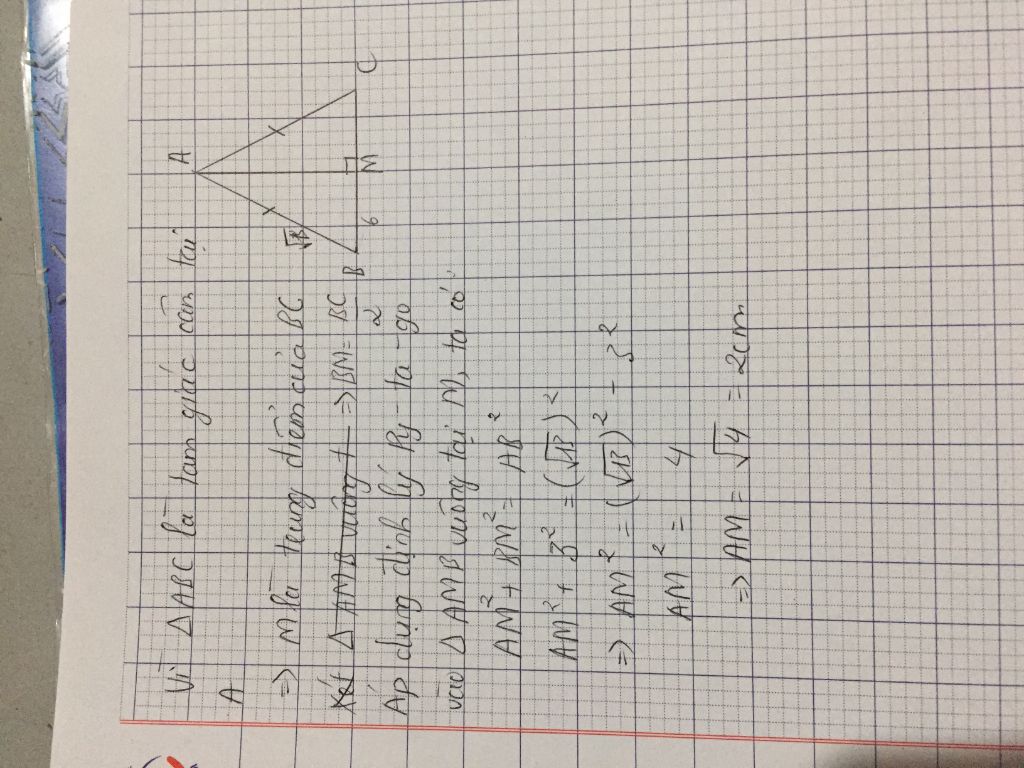 Vì Δ ABC là tam giác cân tại
A
=> M là trung điểm của BC
Xét Δ AMB vuông t => BM = BC/2
Áp dụng định lý Py-ta-go
vào Δ AMB vuông tại M, ta có
AM² + BM² = AB²
AM² + 3² = (√13)²
=> AM² = (√13)² - 3²
AM² = 4
=> AM = √4 = 2cm
A
√13
B
6
M
C